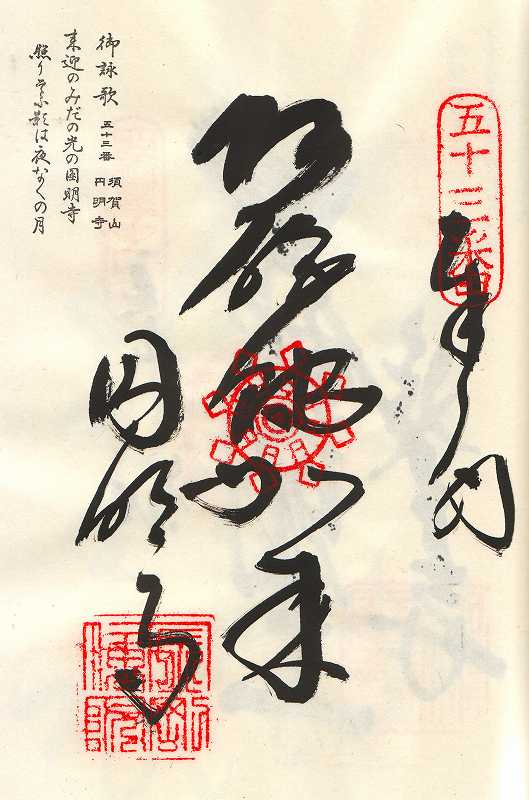 五十三番
奉納
阿弥陀如来
円明寺
御詠歌 五十三番 須賀山
円明寺
来迎のみだの光の圓明寺
照りそふ影は夜な〱の月